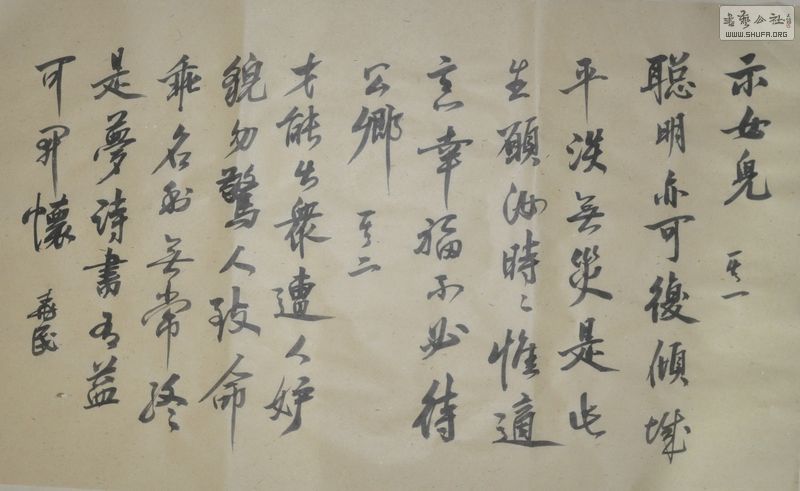 示女兒 其一
聰明亦可復傾城
平淡無災是此
生願汝時〻惟適
意幸福不必待
公卿 其二
才能出衆遭人妒
貌勿驚人致命
乖名利無常終
是夢詩書有益
可開懷 壽民
書藝公社
WWW.SHUFA.ORG